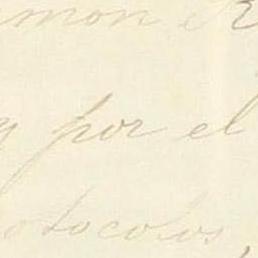 mon
y por el
otocolos,